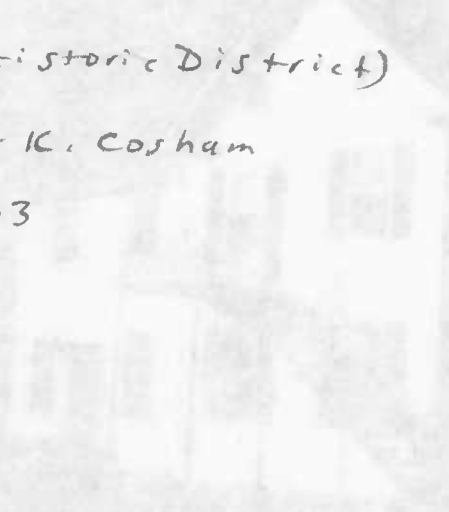 istoric District)
K. Cosham
3